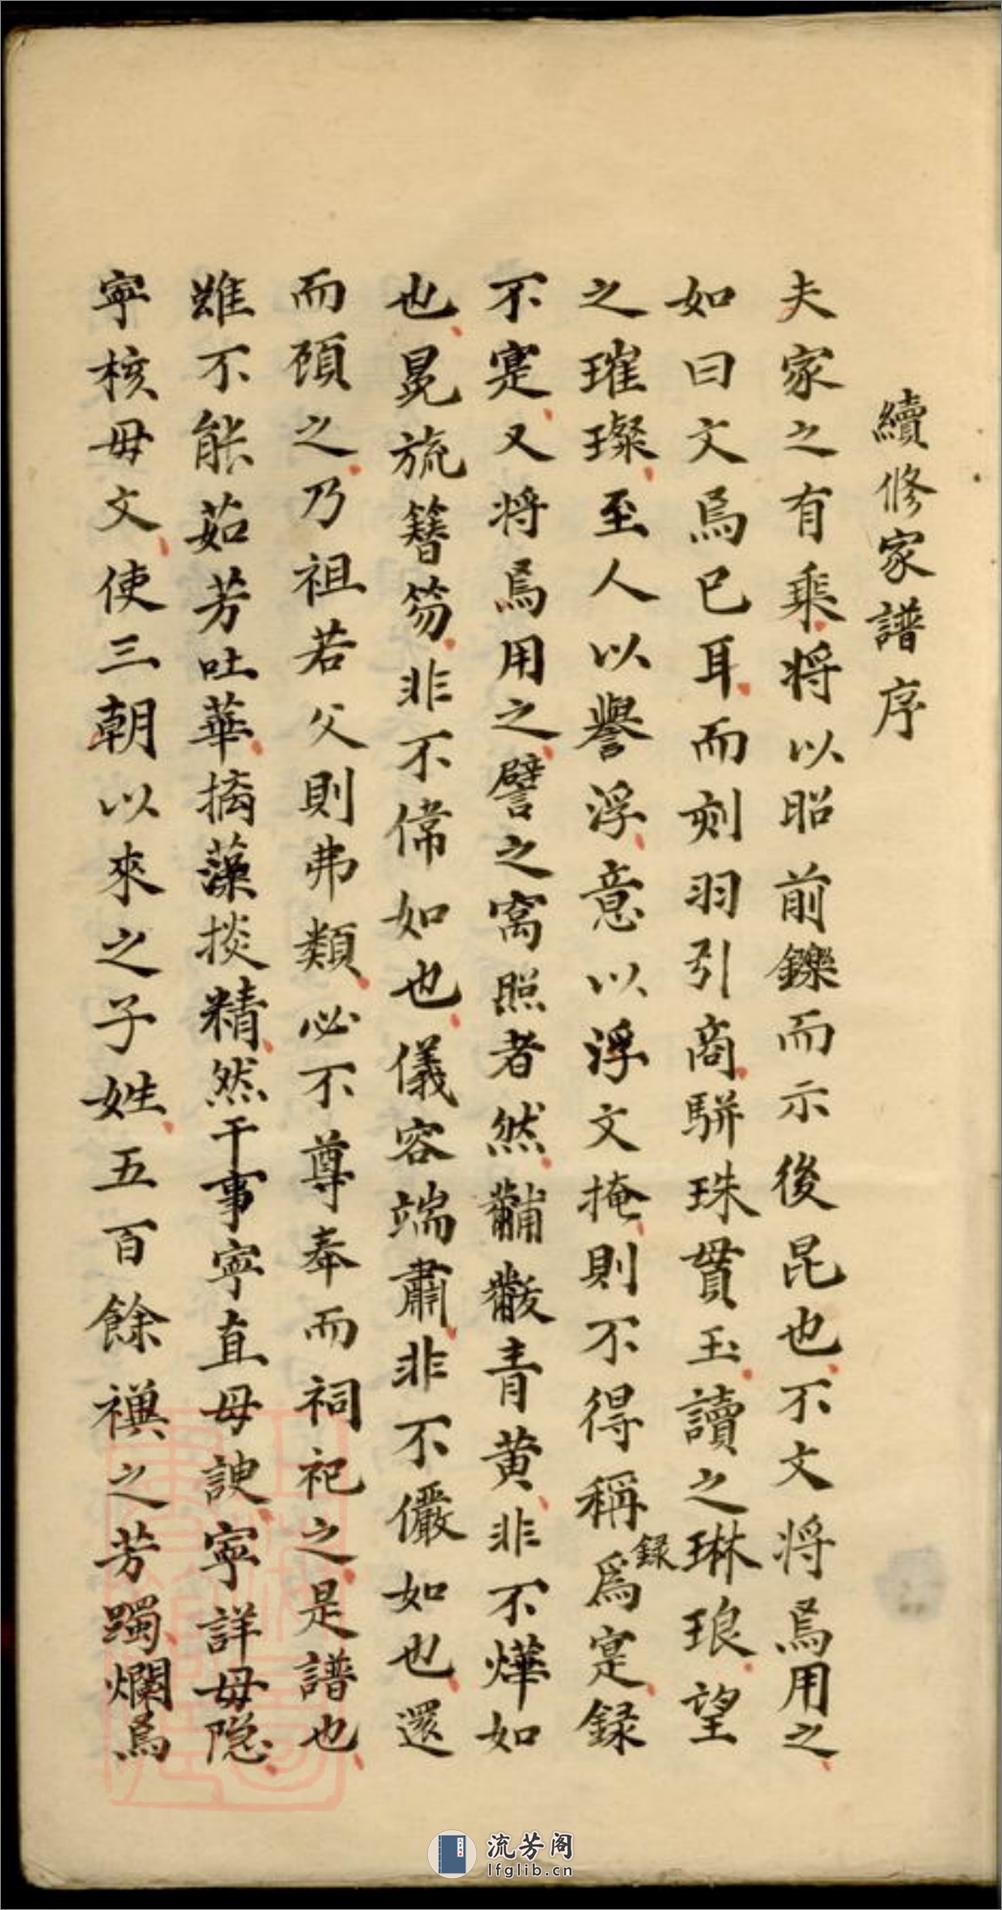 續修家譜序
夫家之有乘将以昭前鑠而示後昆也不文将焉用之
如曰文焉已耳而刻羽引商駢珠貫玉讀之琳琅望
之璀璨至人以譽浮意以浮文掩則不得稱爲寔録
録
不寔又将焉用之譬之寫照者然黼黻青黄非不燁如
也冕旒簪笏非不偉如也儀容端肅非不儼如也還
而頋之乃祖若父則弗類必不尊奉而祠祀之是譜也
雖不能茹芳吐華摛藻掞精然干事寧直毋諛寧詳毋隐
寧核毋文使三朝以來之子姓五百餘禩之芳躅爛焉
流芳阁
lfglib.cn